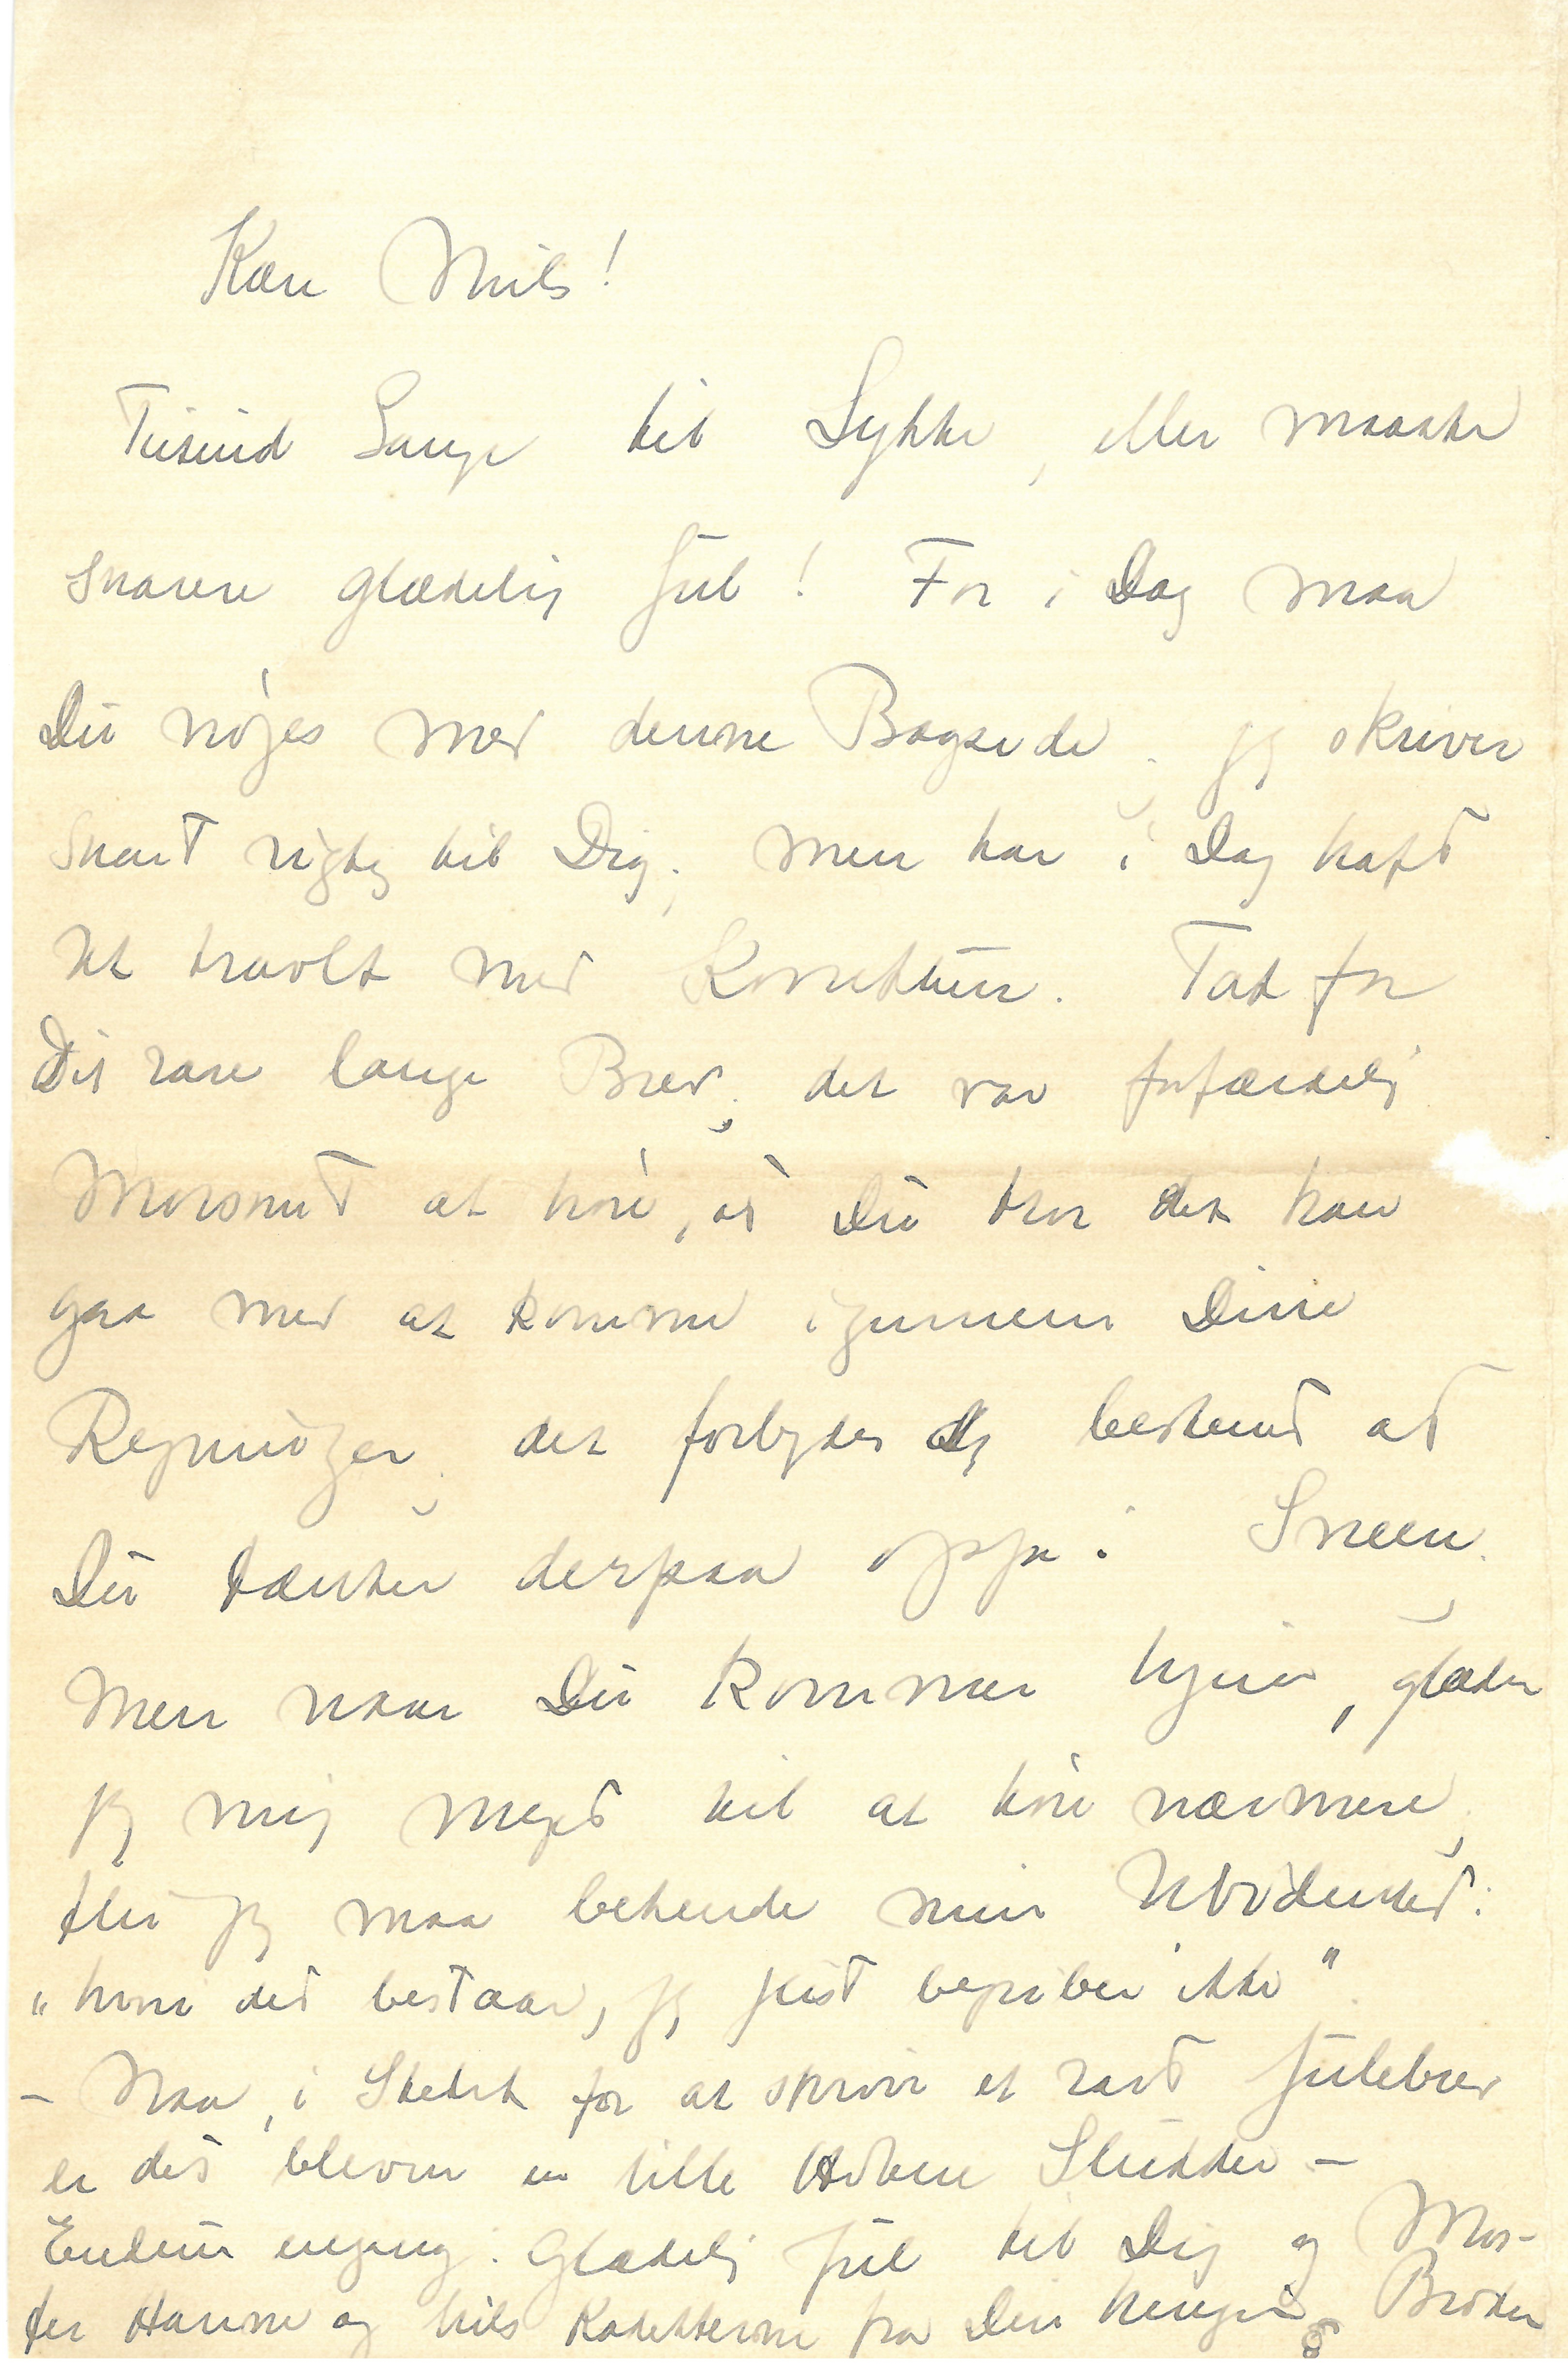 Kære Niels!
Tusind Gange til Lykke, eller maaske
snarere glædelig Jul! For i Dag maa
Du nøjes med denne Bagside. jeg skriver
snart rigtig til Dig; men har i Dag haft
det travlt med Korrektur. Tak for
Dit rare lange Brev; det var forfærdelig
Morsomt at høre, at Du tror det kan
gaa med at komme igennem Dine
Regninger; det forbyder sig bestemt at
Du tænker derpaa oppe i Sneen;
Men naar Du kommer hjem, glæder
jeg mig meget til at høre nærmere,
thi jeg maa bekende min Uvidenhed:
„hvori det bestaar, jeg just begriber ikke“.
- Naa, i Stedet for at skrive et rart Julebrev
er det bleven en lille Hoben Sludder -
Endnu engang: Glædelig Jul til Dig og Mos-
ter Hanne og hils Kadetterne fra Din hengivne Broder